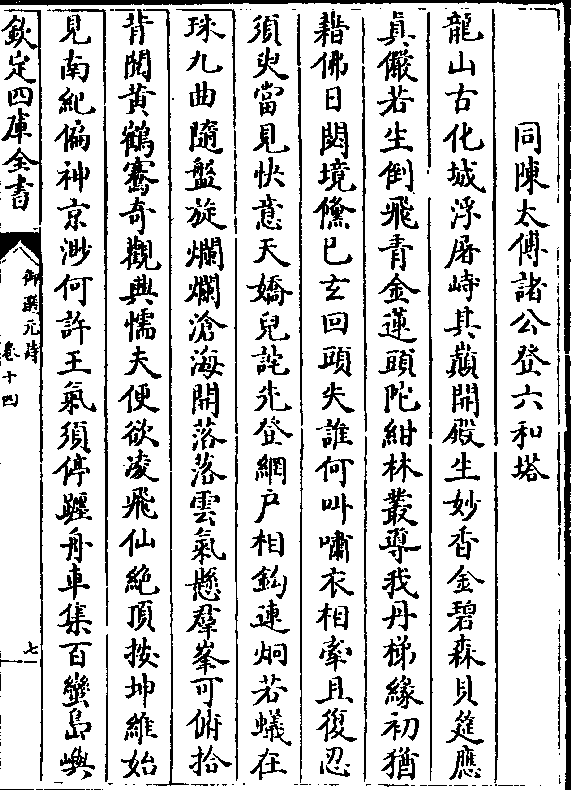 同陳太傅諸公登六和塔
龍山古化城浮屠峙其巔開殿生妙香金碧森貝筵應
真儼若生倒飛青金蓮頭陀紺林叢導我丹梯緣初猶
藉佛日閎境儵已玄回頭失誰何叫嘯衣相牽且復忍
須臾當見快意天嬌兒詫先登網户相鈎連炯若蟻在
珠九曲隨盤旋爛爛滄海開落落雲氣懸羣峯可俯拾
背閱黄鶴騫奇觀興懦夫便欲凌飛仙絶頂按坤維始
見南紀偏神京渺何許王氣須停躔舟車集百蠻島嶼
欽定四庫全書
御選元詩
卷十四
七